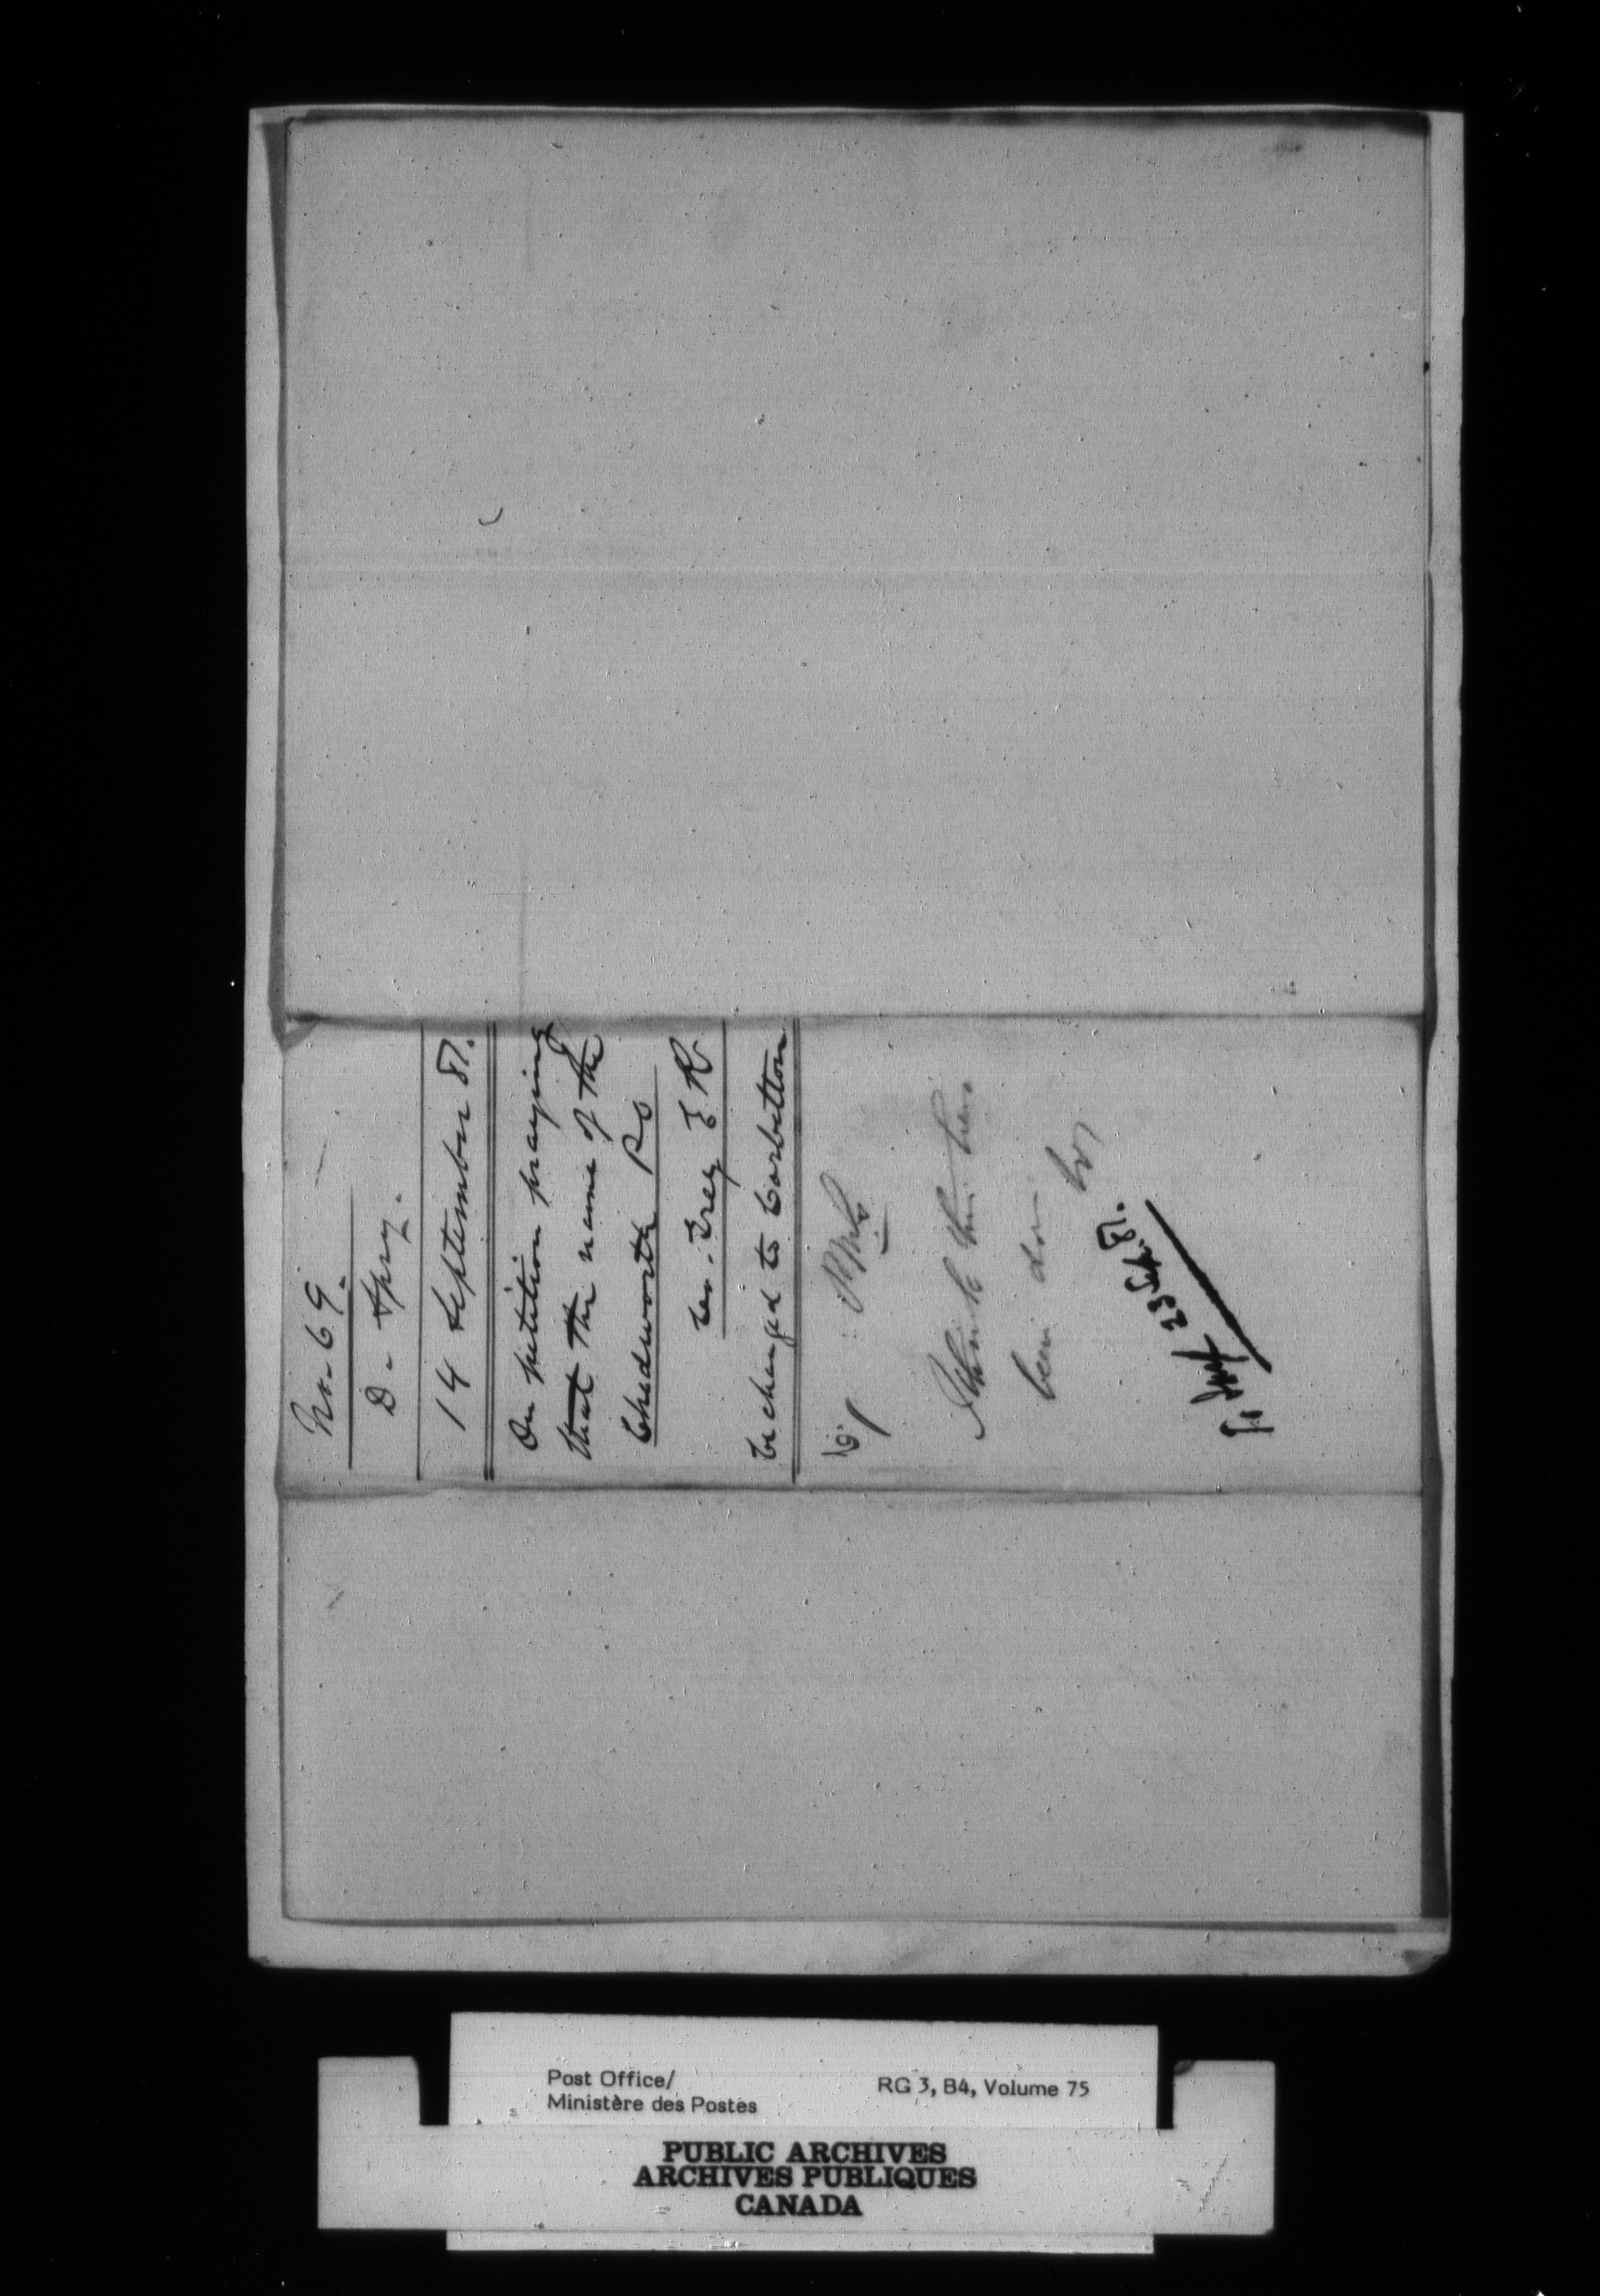 No 69.
D - Spry.
14 September 87.
On petition praying
that the name of the
Chedworth P O
Co. Grey E R
be changed to Corbetton
I think this has
been done
23 Sept. 87.
Post Office/
Ministère des Postes
RG 3, B4, Volume 75
PUBLIC ARCHIVES
ARCHIVES PUBLIQUES
CANADA